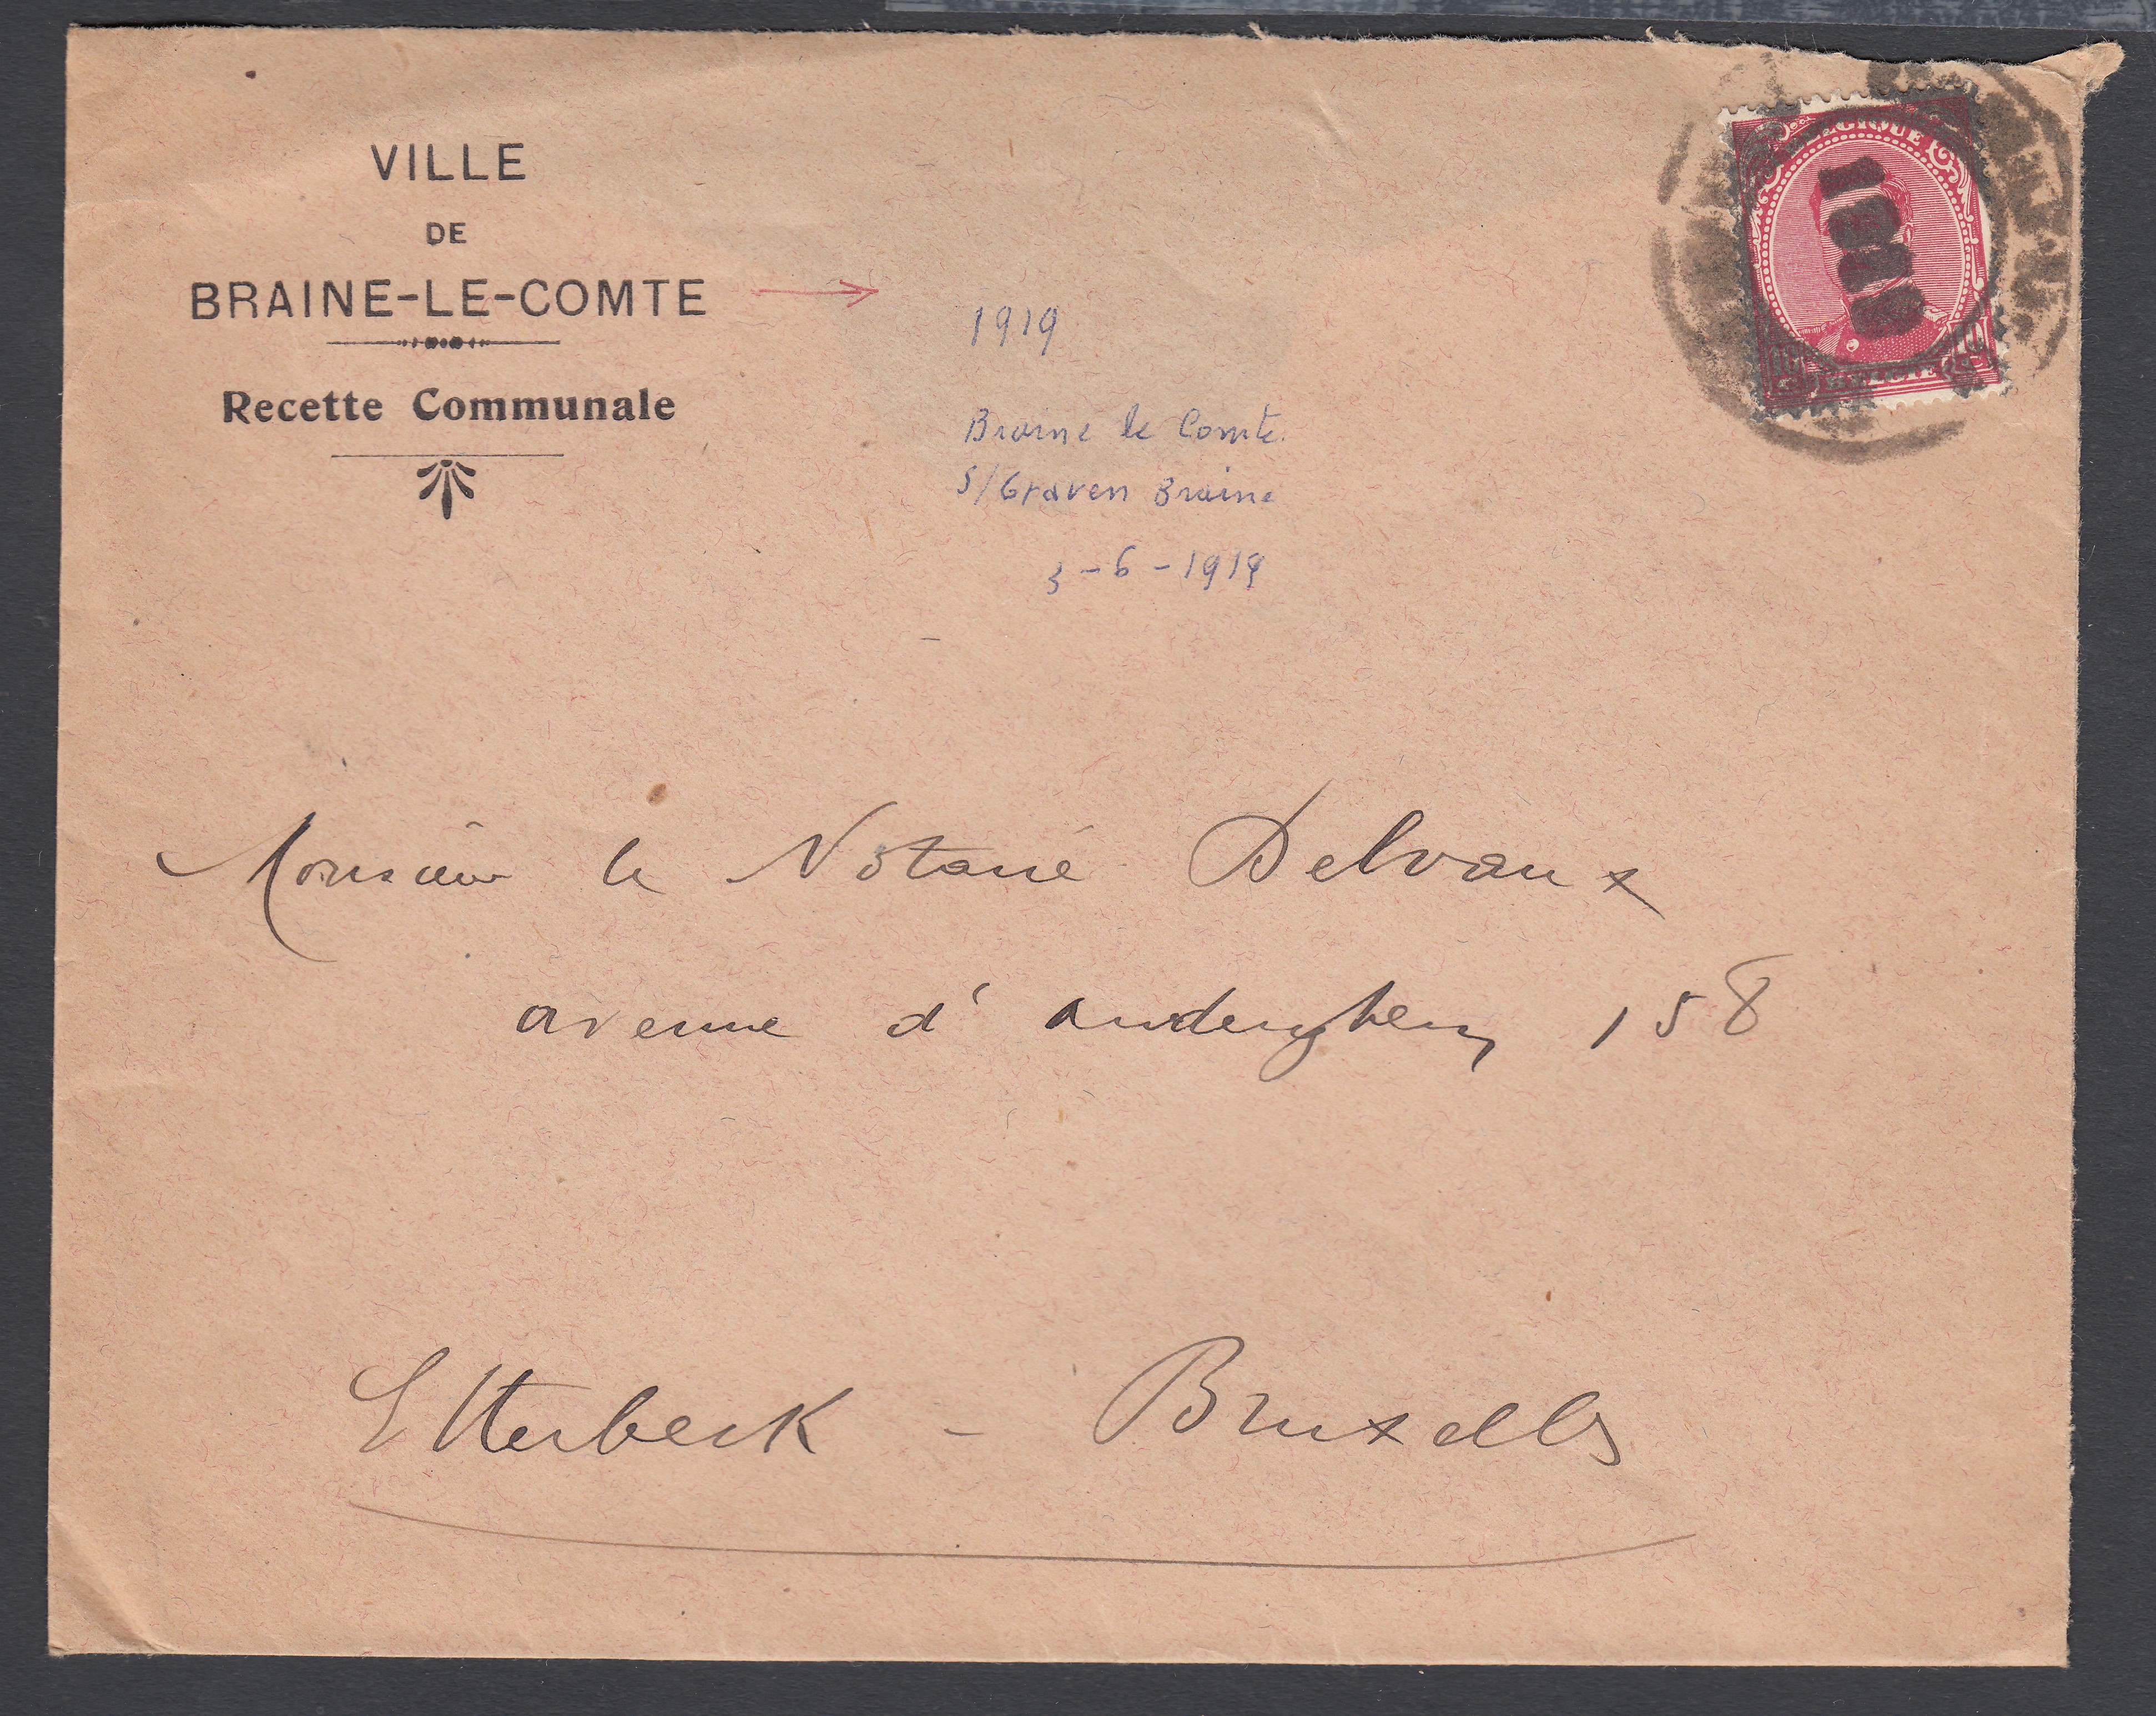 VILLE
DE
BRAINE-LE-COMTE
Recette Communale
1919
Braine le Comte
S/Graven Braine
3-6-1919
BELGIQUE
Monsieur le Notaire Delvaux
avenue d'Auderghem 158
Etterbeek - Bruxelles